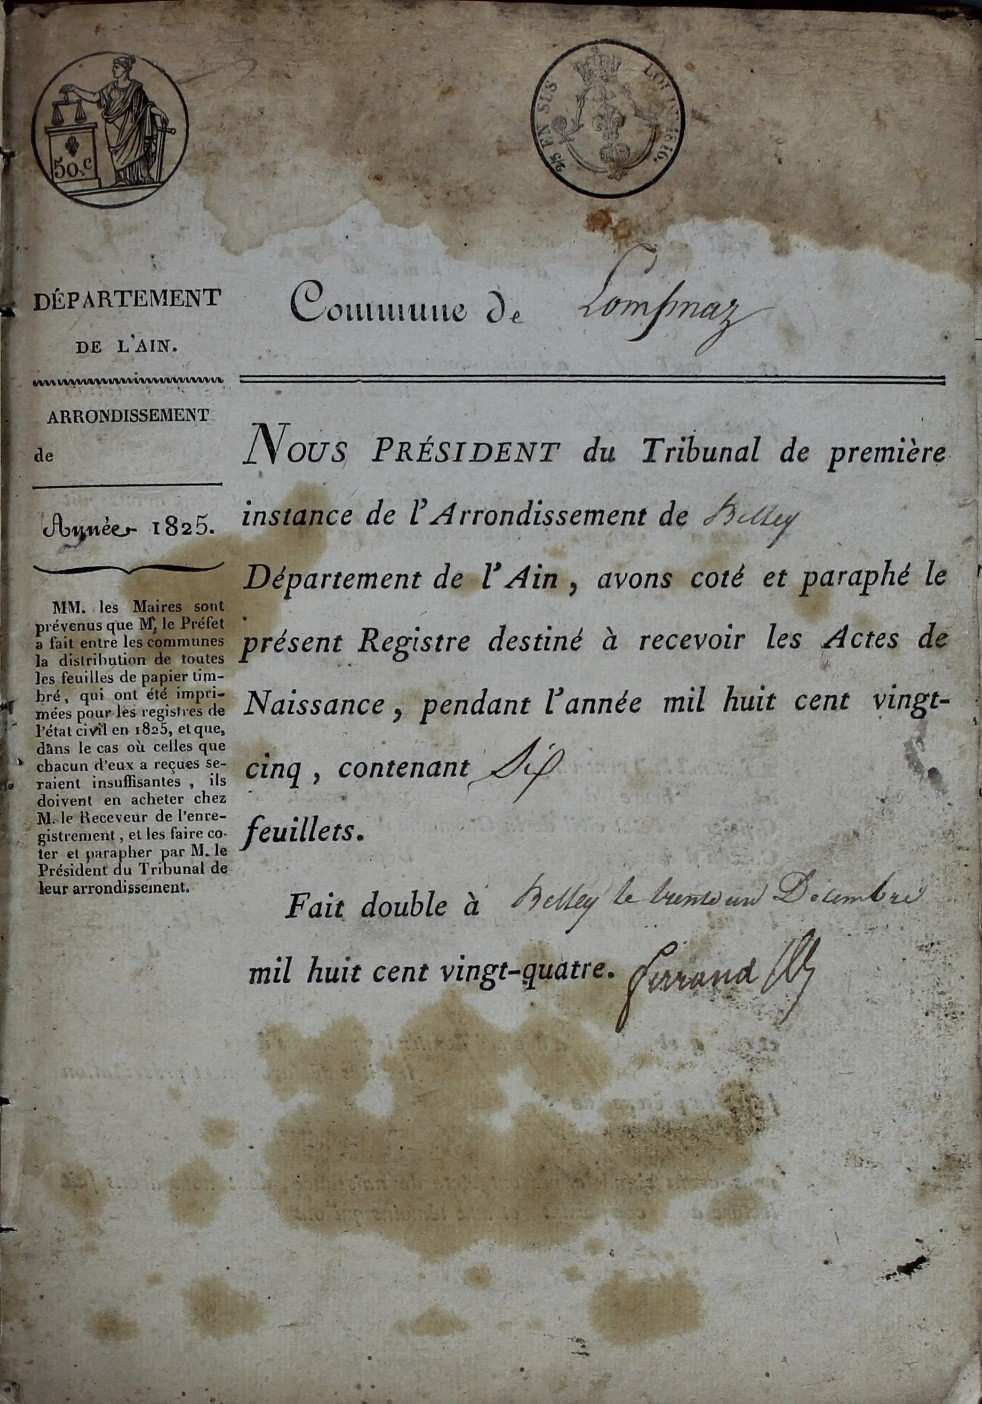 50.c
2/8 EN SUS
LOI DE 1816.
DÉPARTEMENT
DE L'AIN.
ARRONDISSEMENT
de
Année 1825.
MM. les Maires sont
prévenus que Mr. le Préfet
a fait entre les communes
la distribution de toutes
les feuilles de papier tim-
bré, qui ont été impri-
mées pour les registres de
l'état civil en 1825, et que,
dans le cas où celles que
chacun d'eux a reçues se-
raient insuffisantes, ils
doivent en acheter chez
M. le Receveur de l'enre-
gistrement, et les faire co-
ter et parapher par M. le
Président du Tribunal de
leur arrondissement.
Commune de Lompnaz
NOUS PRÉSIDENT du Tribunal de première
instance de l'Arrondissement de Belley
Département de l'Ain, avons coté et paraphé le
présent Registre destiné à recevoir les Actes de
Naissance, pendant l'année mil huit cent vingt-
cinq, contenant Six
feuillets.
Fait double à Belley le trente un Décembre
mil huit cent vingt-quatre. Ferrand